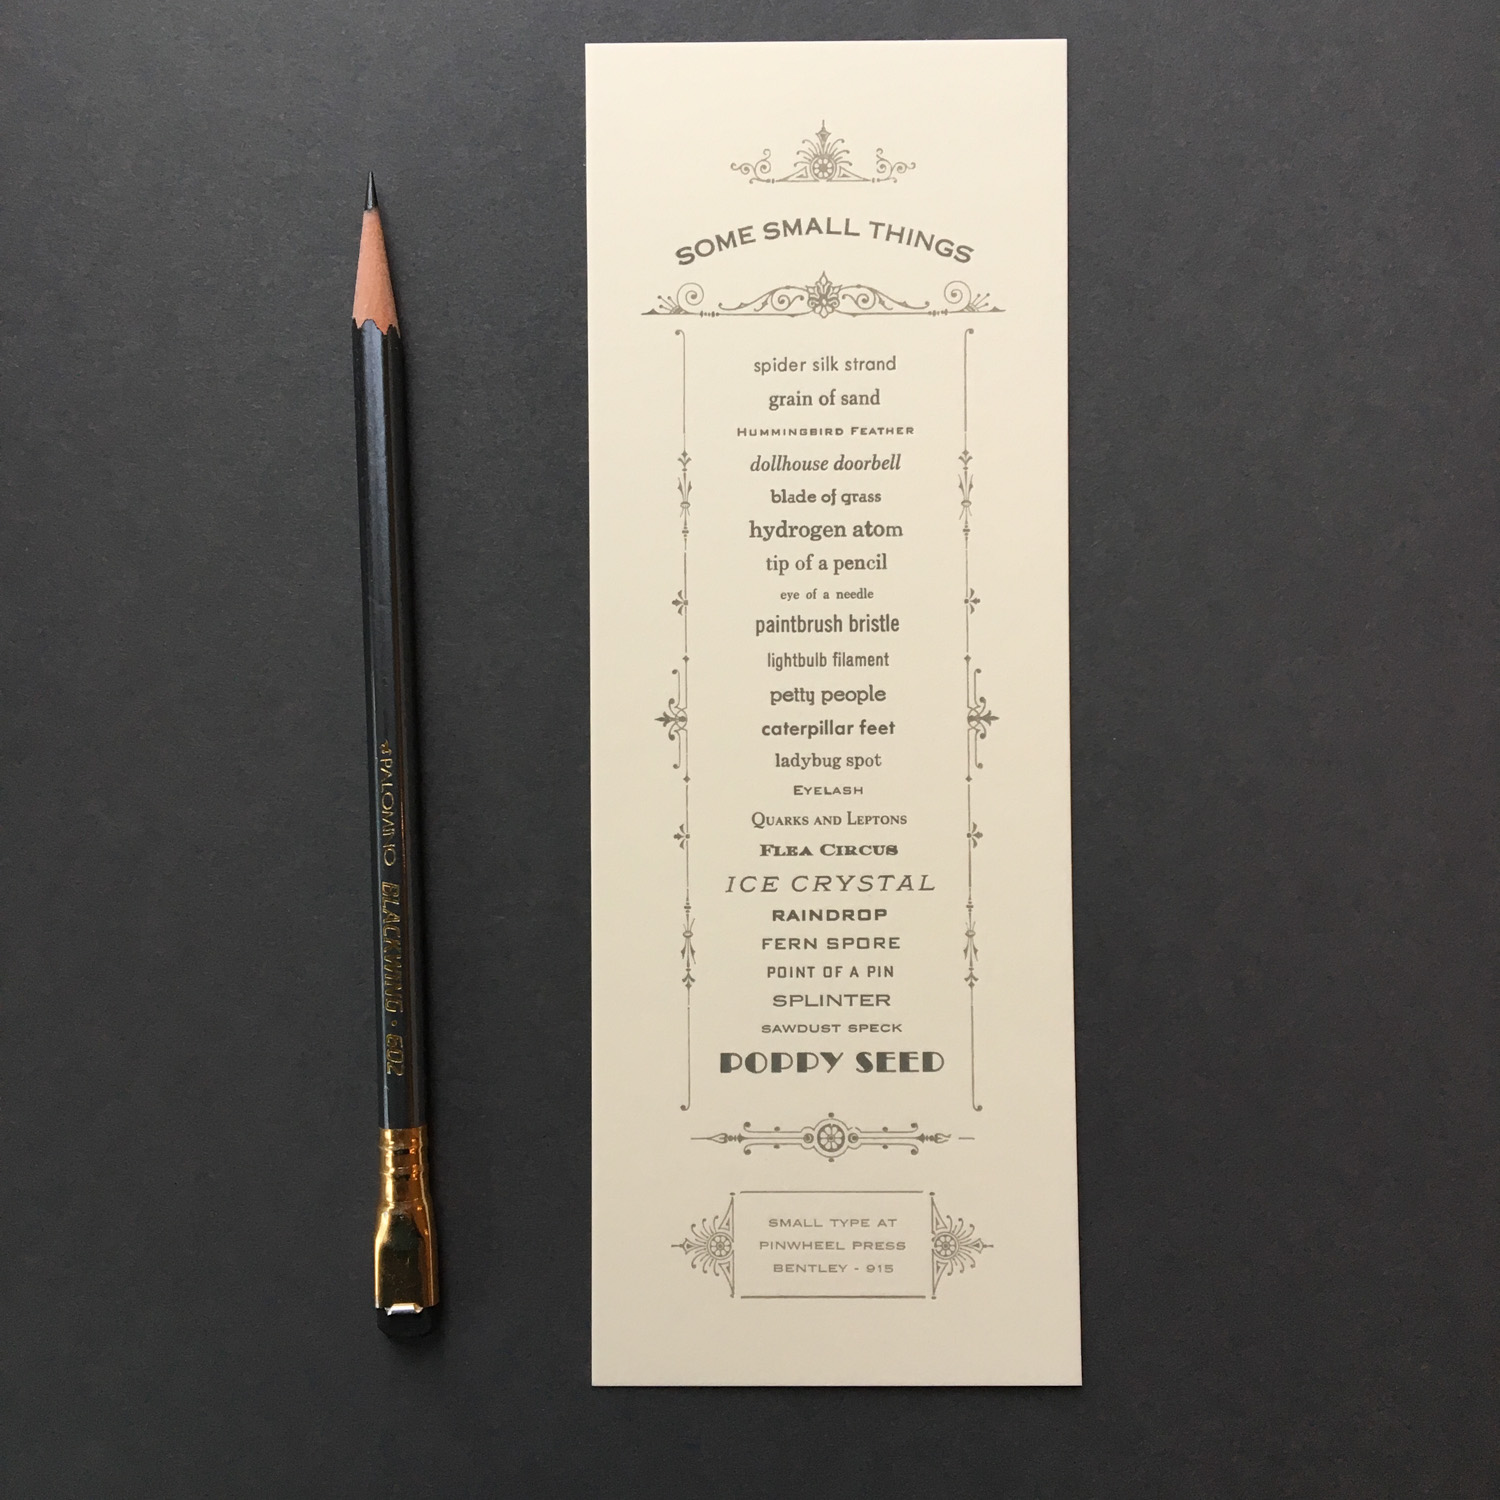 SOME SMALL THINGS
spider silk strand
grain of sand
HUMMINGBIRD FEATHER
dollhouse doorbell
blade of grass
hydrogen atom
tip of a pencil
eye of a needle
paintbrush bristle
lightbulb filament
petty people
caterpillar feet
ladybug spot
EYELASH
QUARKS AND LEPTONS
FLEA CIRCUS
ICE CRYSTAL
RAINDROP
FERN SPORE
POINT OF A PIN
SPLINTER
SAWDUST SPECK
POPPY SEED
SMALL TYPE AT
PINWHEEL PRESS
BENTLEY - 915
PALOMINO BLACKWING • 602